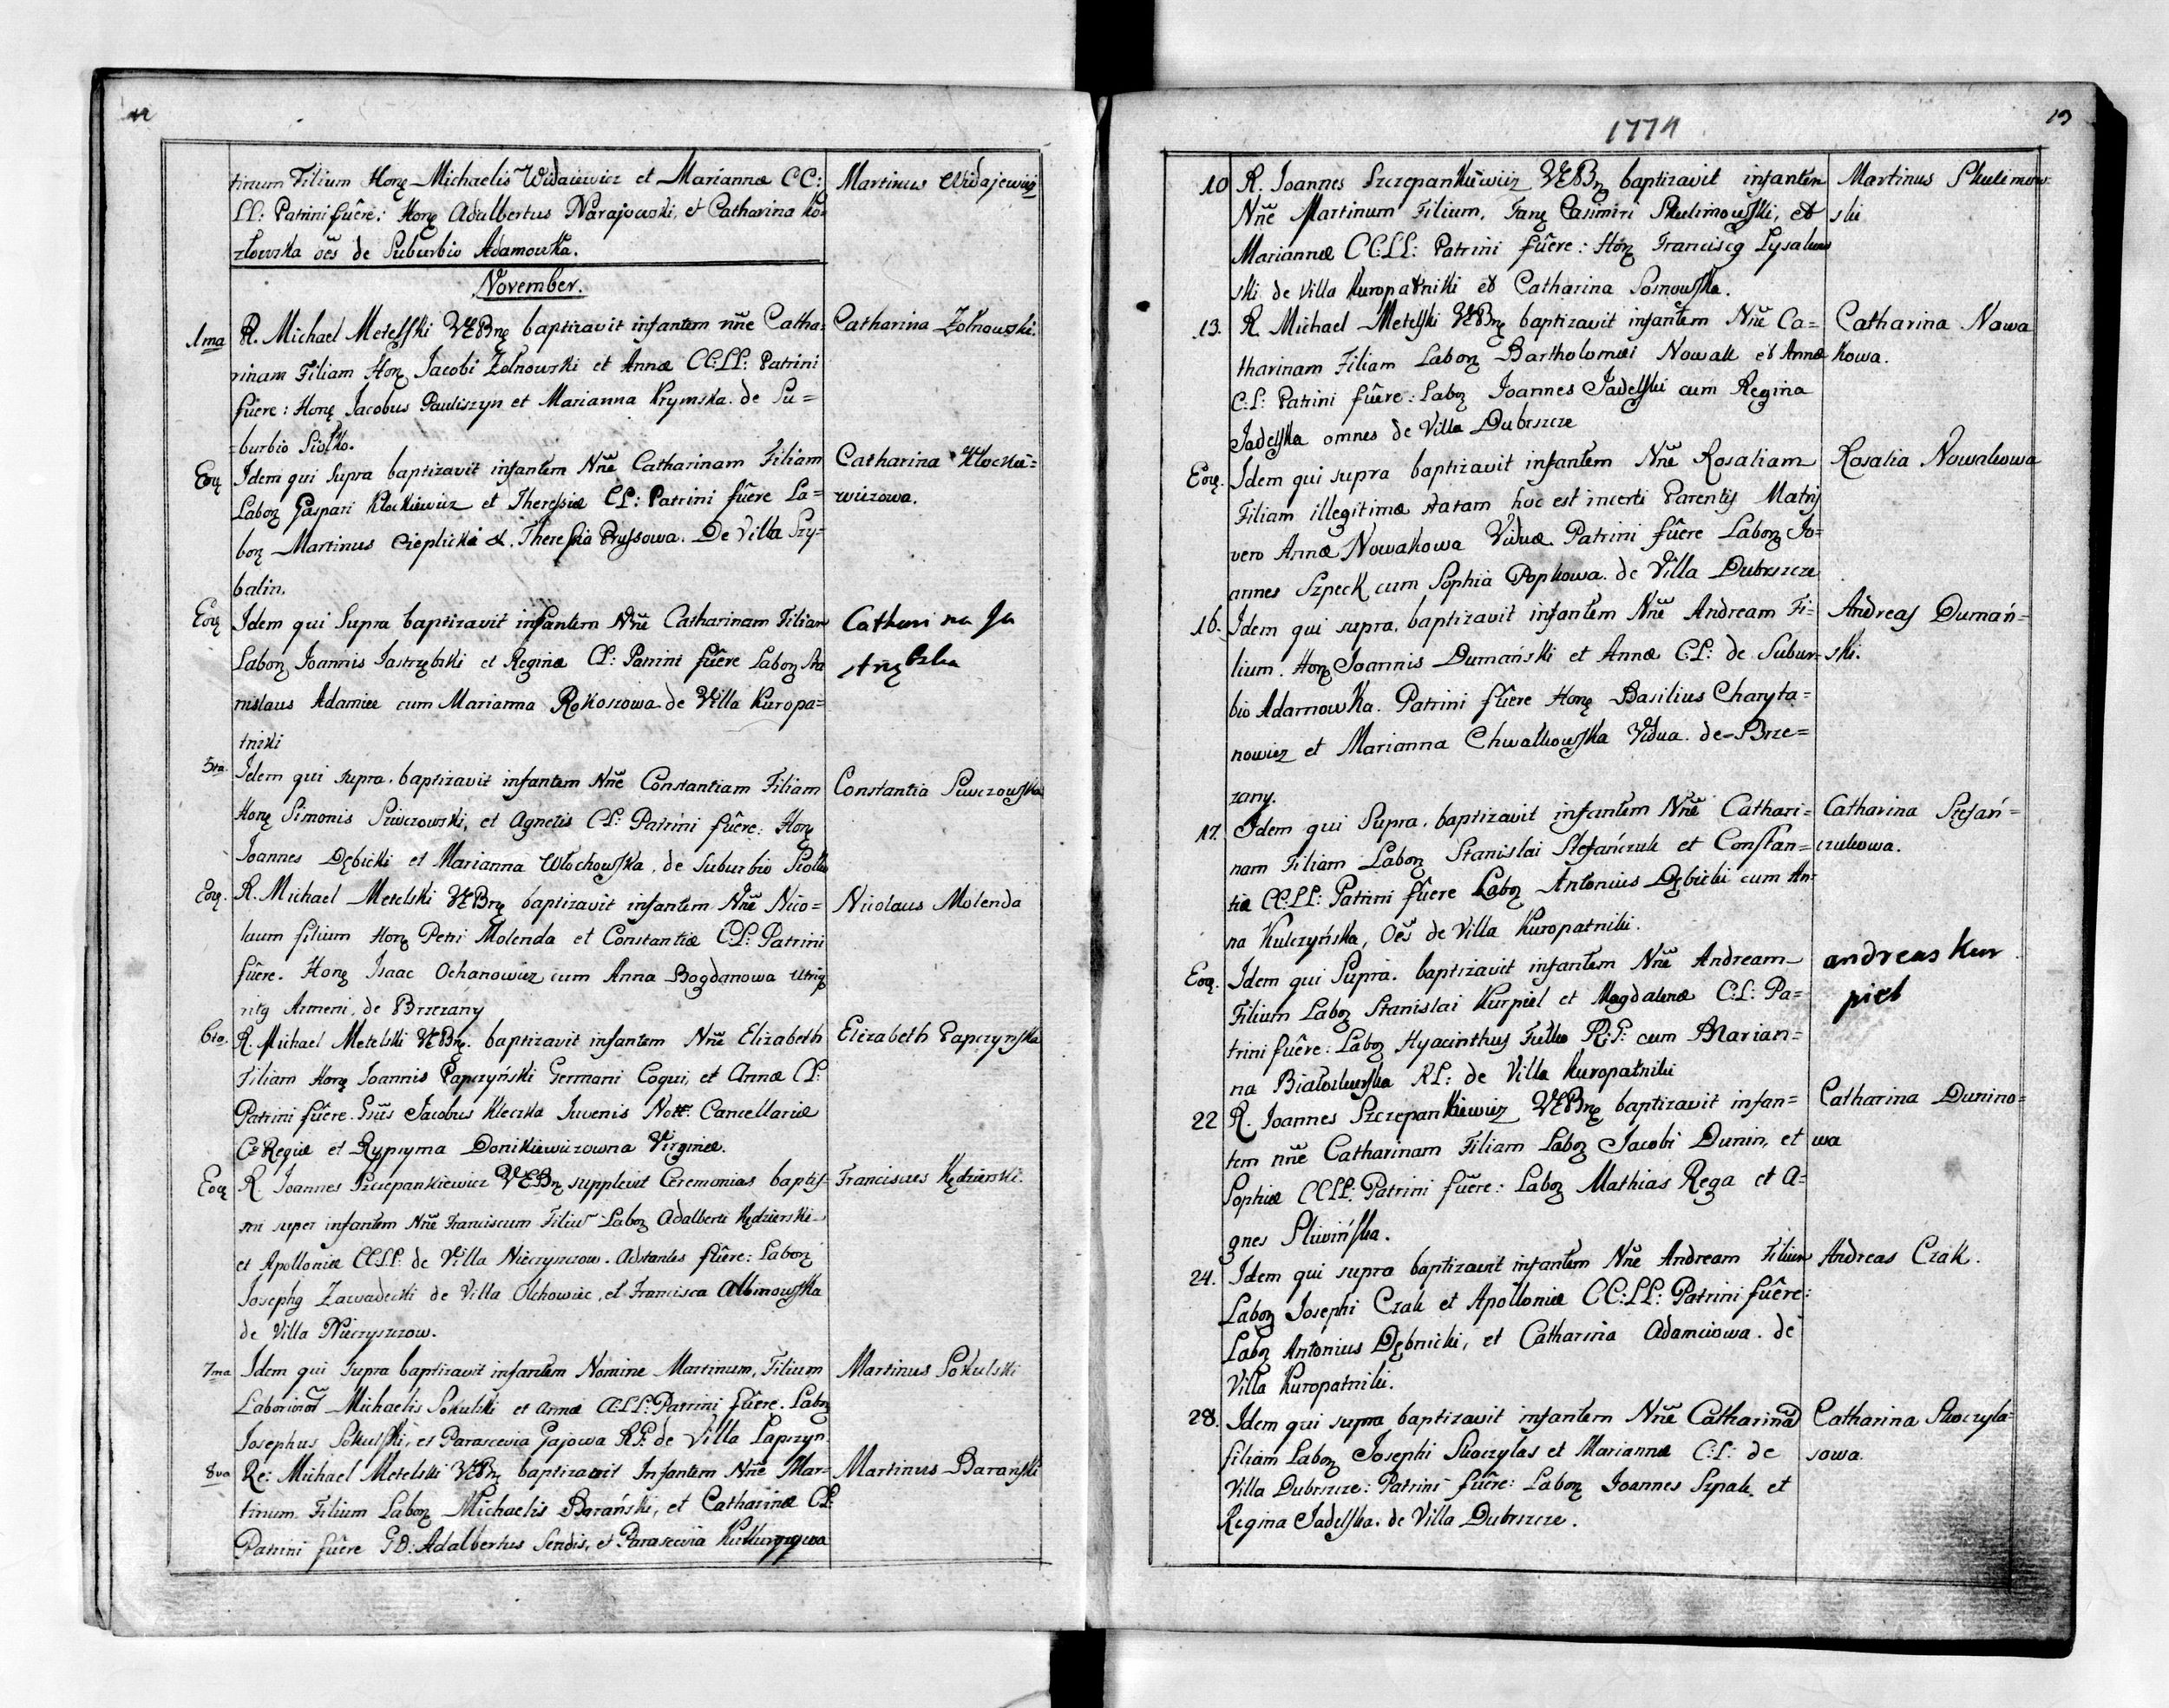 12
tinum Filium Honę Michaelis Widaiewicz et Mariannæ CC:
LL: Patrini fuêre: Honę Adalbertus Narajowski, et Catharina Ko=
złowska oẽs de Suburbio Adamowka.
Martinus Widajewicz
November.
1ma R. Michael Metelski VEBrzę baptizavit infantem nñe Catha=
rinam Filiam Honę Jacobi Zołnowski et Annæ CC:LL: Patrini
fuêre: Honę Jacobus Pauliszyn et Marianna Krymska. de Su=
=burbio Siołko.
Catharina Zołnowski.
Eoq Idem qui Supra baptizavit infantem Nñe Catharinam Filiam
Laboz Gaspari Klockiewicz et Theressiæ CL: Patrini fuêre La=
boz Martinus Cieplicki &. Theressia Prussowa. De Villa Szy=
balin.
Catharina Klockie=
wiczowa.
Eoq Idem qui Supra baptizavit infantem Nñe Catharinam Filiam
Laboz Joannis Jastrzębski et Reginæ CL: Patrini fuêre Laboz Sta
nislaus Adamiec cum Marianna Rokoszowa de Villa Kuropa=
tniki
Catharina Ja
strzębska
5ta Idem qui supra. baptizavit infantem Nñe Constantiam Filiam
Honę Simonis Szwczowski, et Agnetis CL: Patrini fuêre: Honę
Joannes Dębicki et Marianna Włochowska. de Suburbio Siolko
Constantia Szwczowska
Eoq. R. Michael Metelski VEBrzę baptizavit infantem Nñe Nico=
laum filium Honę Petri Molenda et Constantiæ C:L: Patrini
fuêre. Honę Isaac Ochanowicz cum Anna Bogdanowa utriq
ritg Armeni, de Brzezany
Nicolaus Molenda
6ta. R. Michael Metelski VEBrzę. baptizavit infantem Nñe Elizabeth
Filiam Honę Joannis Papczyński Germani Coqui, et Annæ CL:
Patrini fuêre. Jacobus Kleczka Juvenis Cancellariæ
Regiæ et Rypryma Donikiewiczowna Virginæ.
Elizabeth Papczynska
Eoq R. Joannes Szczepankiewicz VEBrzę supplevit Ceremonias baptis=
mi super infantem Nñe Franciscum Filiũ Laboz Adalberti Kędzierski
et Apolloniæ CCLL: de Villa Nieczynczow. Adstantes fuêre: Laboz
Josephq Zawadecki de Villa Olchowiec, et Francisca Albinowska
de Villa Nieczyszczow.
Franciscus Kędzierski.
7ma Idem qui supra baptizavit infantem Nomine Martinum, Filium
Michaelis Sokulski et Annæ CC:LL: Patrini fuêre. Laboz
Josephus Sokulski, et Parascevia Gajowa RG: de Villa Lapszyn.
Martinus Sokulski
8va Re: Michael Metelski VEBrzę baptizavit Infantem Nñe Mar=
tinum Filium Laboz Michaelis Barański, et Catharinæ CL:
Patrini fuêre GD: Adalbertus Sendis, et Parascevia
Martinus Barański
1774
13
10 R. Joannes Szczepankiewicz VEBrzę baptizavit infantem
Nñe Martinum Filium. Casimiri Skulimowski, et
Mariannæ CC:LL: Patrini fuêre: Honę Franciscq Lysakow
ski de Villa Kuropatniki et Catharina Sosnowska.
Martinus Skulimow
ski
13. R. Michael Metelski VEBrzę baptizavit infantem Nñe Ca=
tharinam Filiam Laboz Bartholomæi Nowak et Annæ
C:L: Patrini fuêre: Laboz Joannes Jadelski cum Regina
Jadelska omnes de Villa Dubrszcze
Catharina Nowa
kowa.
Eoq. Idem qui supra baptizavit infantem Nñe Rosaliam
Filiam illegitimæ natam hoc est incerti Parentis Matris
vero Annæ Nowakowa Viduæ Patrini fuêre Laboz Jo=
annes Szpeck cum Sophia Popkowa. de Villa Dubrszcze
Rosalia Nowakowa
16. Idem qui supra. baptizavit infantem Nñe Andream Fi=
lium. Honę Joannis Dumański et Annæ C:L: de Subur=
bio Adamowka. Patrini fuêre Honę Basilius Charyta=
nowicz et Marianna Chwalkowska Vidua. de Brze=
zany.
Andreas Dumań=
ski.
17. Idem qui Supra. baptizavit infantem Nñe Cathari=
nam Filiam Laboz Stanislai Stefańczuk et Constan=
tiæ CC:LL: Patrini fuêre Laboz Antonius Dębicki cum An=
na Kulczyńska, Oẽs de Villa Kuropatniki.
Catharina Stefań=
czukowa.
Eoq. Idem qui Supra. baptizavit infantem Nñe Andream
Filium Laboz Stanislai Kurpiel et Magdalenæ C:L: Pa=
trini fuêre: Laboz Hyacinthus R:G: cum Marian=
na Białoskurska RL: de Villa Kuropatniki
andreas Kur
piel
22 R. Joannes Szczepankiewicz VEBrzę baptizavit infan=
tem nñe Catharinam Filiam Laboz Jacobi Dunin, et
Sophiæ CCLL: Patrini fuêre: Laboz Mathias Rega et A=
gnes Sliwińska.
Catharina Dunino=
wa
24. Idem qui supra baptizavit infantem Nñe Andream Filium
Laboz Josephi Czak et Apolloniæ CC:LL: Patrini fuêre:
Laboz Antonius Dębnicki, et Catharina Adamciowa. de
Villa Kuropatniki.
Andreas Czak.
28. Idem qui supra baptizavit infantem Nñe Catharinã
filiam Laboz Josephi Skoczylas et Mariannæ C:L: de
Villa Dubrszcze: Patrini fuêre: Laboz Joannes Szpak et
Regina Jadelska. de Villa Dubrszcze.
Catharina Skoczyla=
sowa.